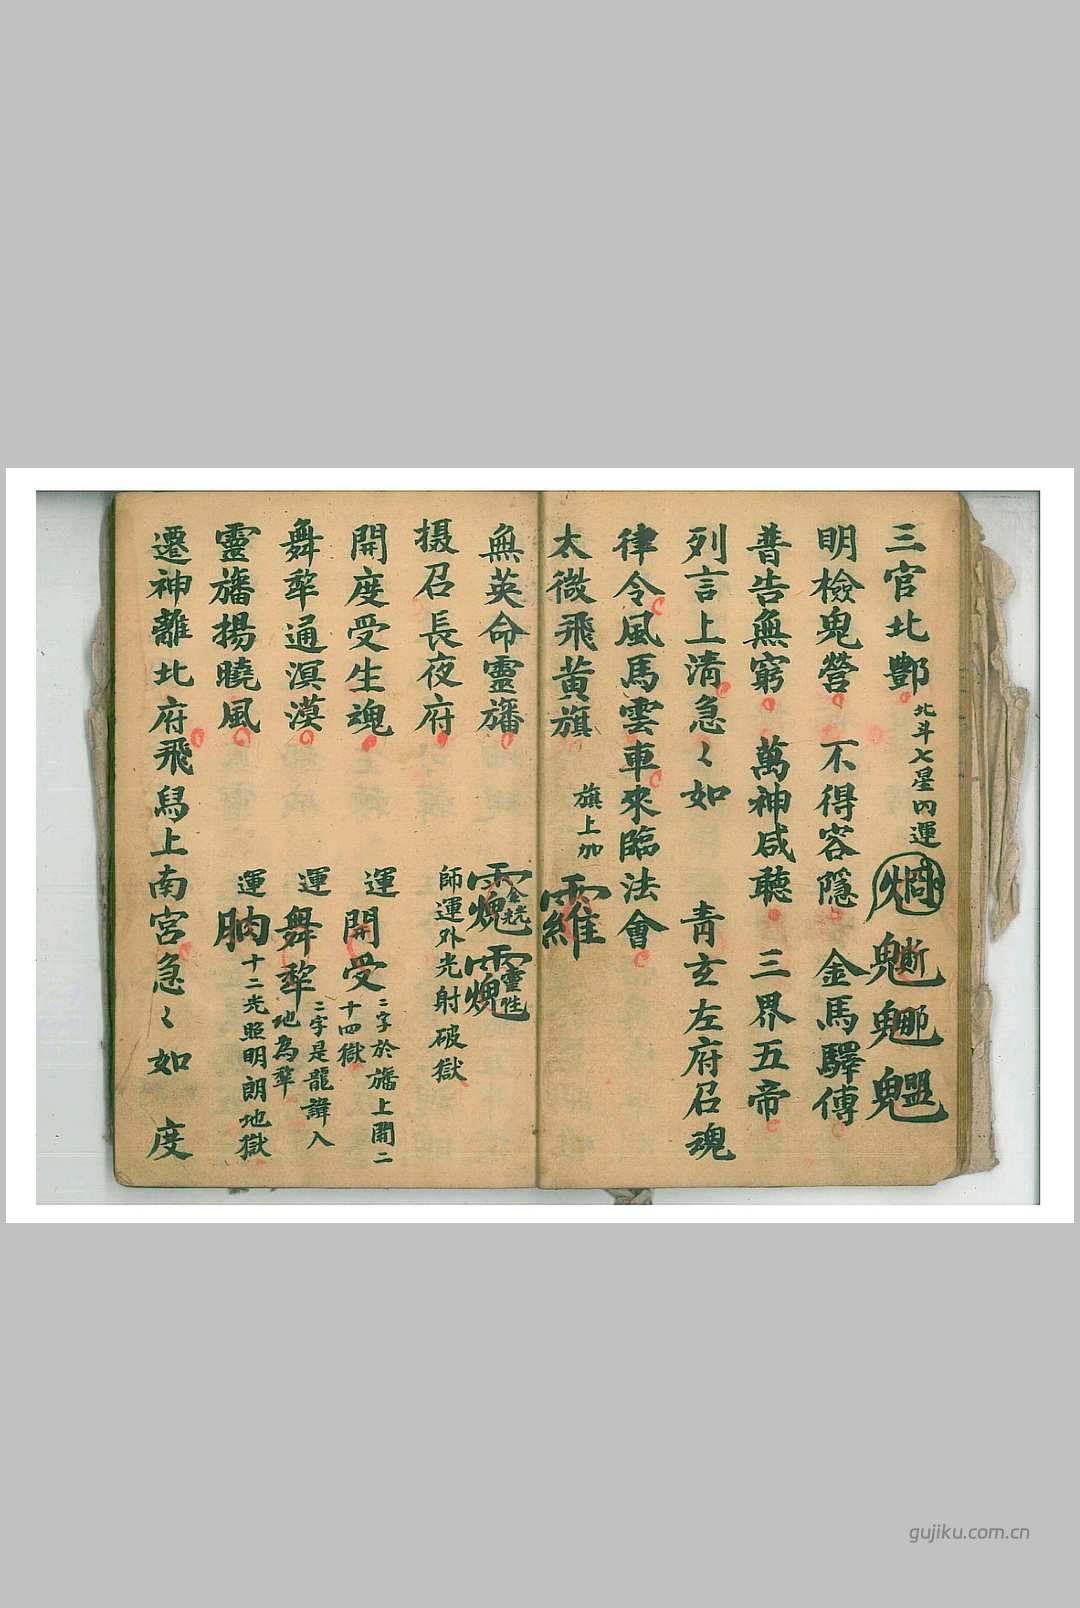 三官北酆 北斗七星内運
明檢鬼營 不得容隱 金馬驛傳
普告無窮 萬神咸聽 三界五帝
列言上清急〻如 青玄左府召魂
律令風馬雲車來臨法會
太微飛黃旗 旗上加
無英命靈旛
攝召長夜府 師運外光射破獄
開度受生魂 運開受 二字於旛上開二十四獄
舞犂通溟漠 運舞犂 二字是龍諱入地為犂
靈旛揚曉風 運 十二光照明朗地獄
遷神離北府飛舄上南宮急〻如 度
gujiku.com.cn